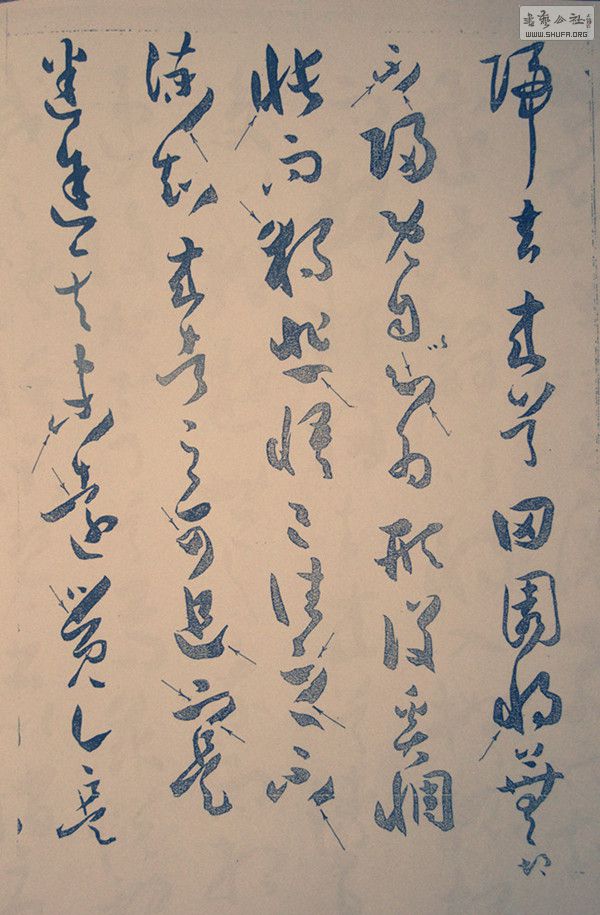 書藝公社
WWW.SHUFA.ORG
歸去來兮田園將蕪胡
不歸既自以心為形役奚惆
悵而獨悲悟已往之不
諫知來者之可追寔
迷途其未遠覺今是